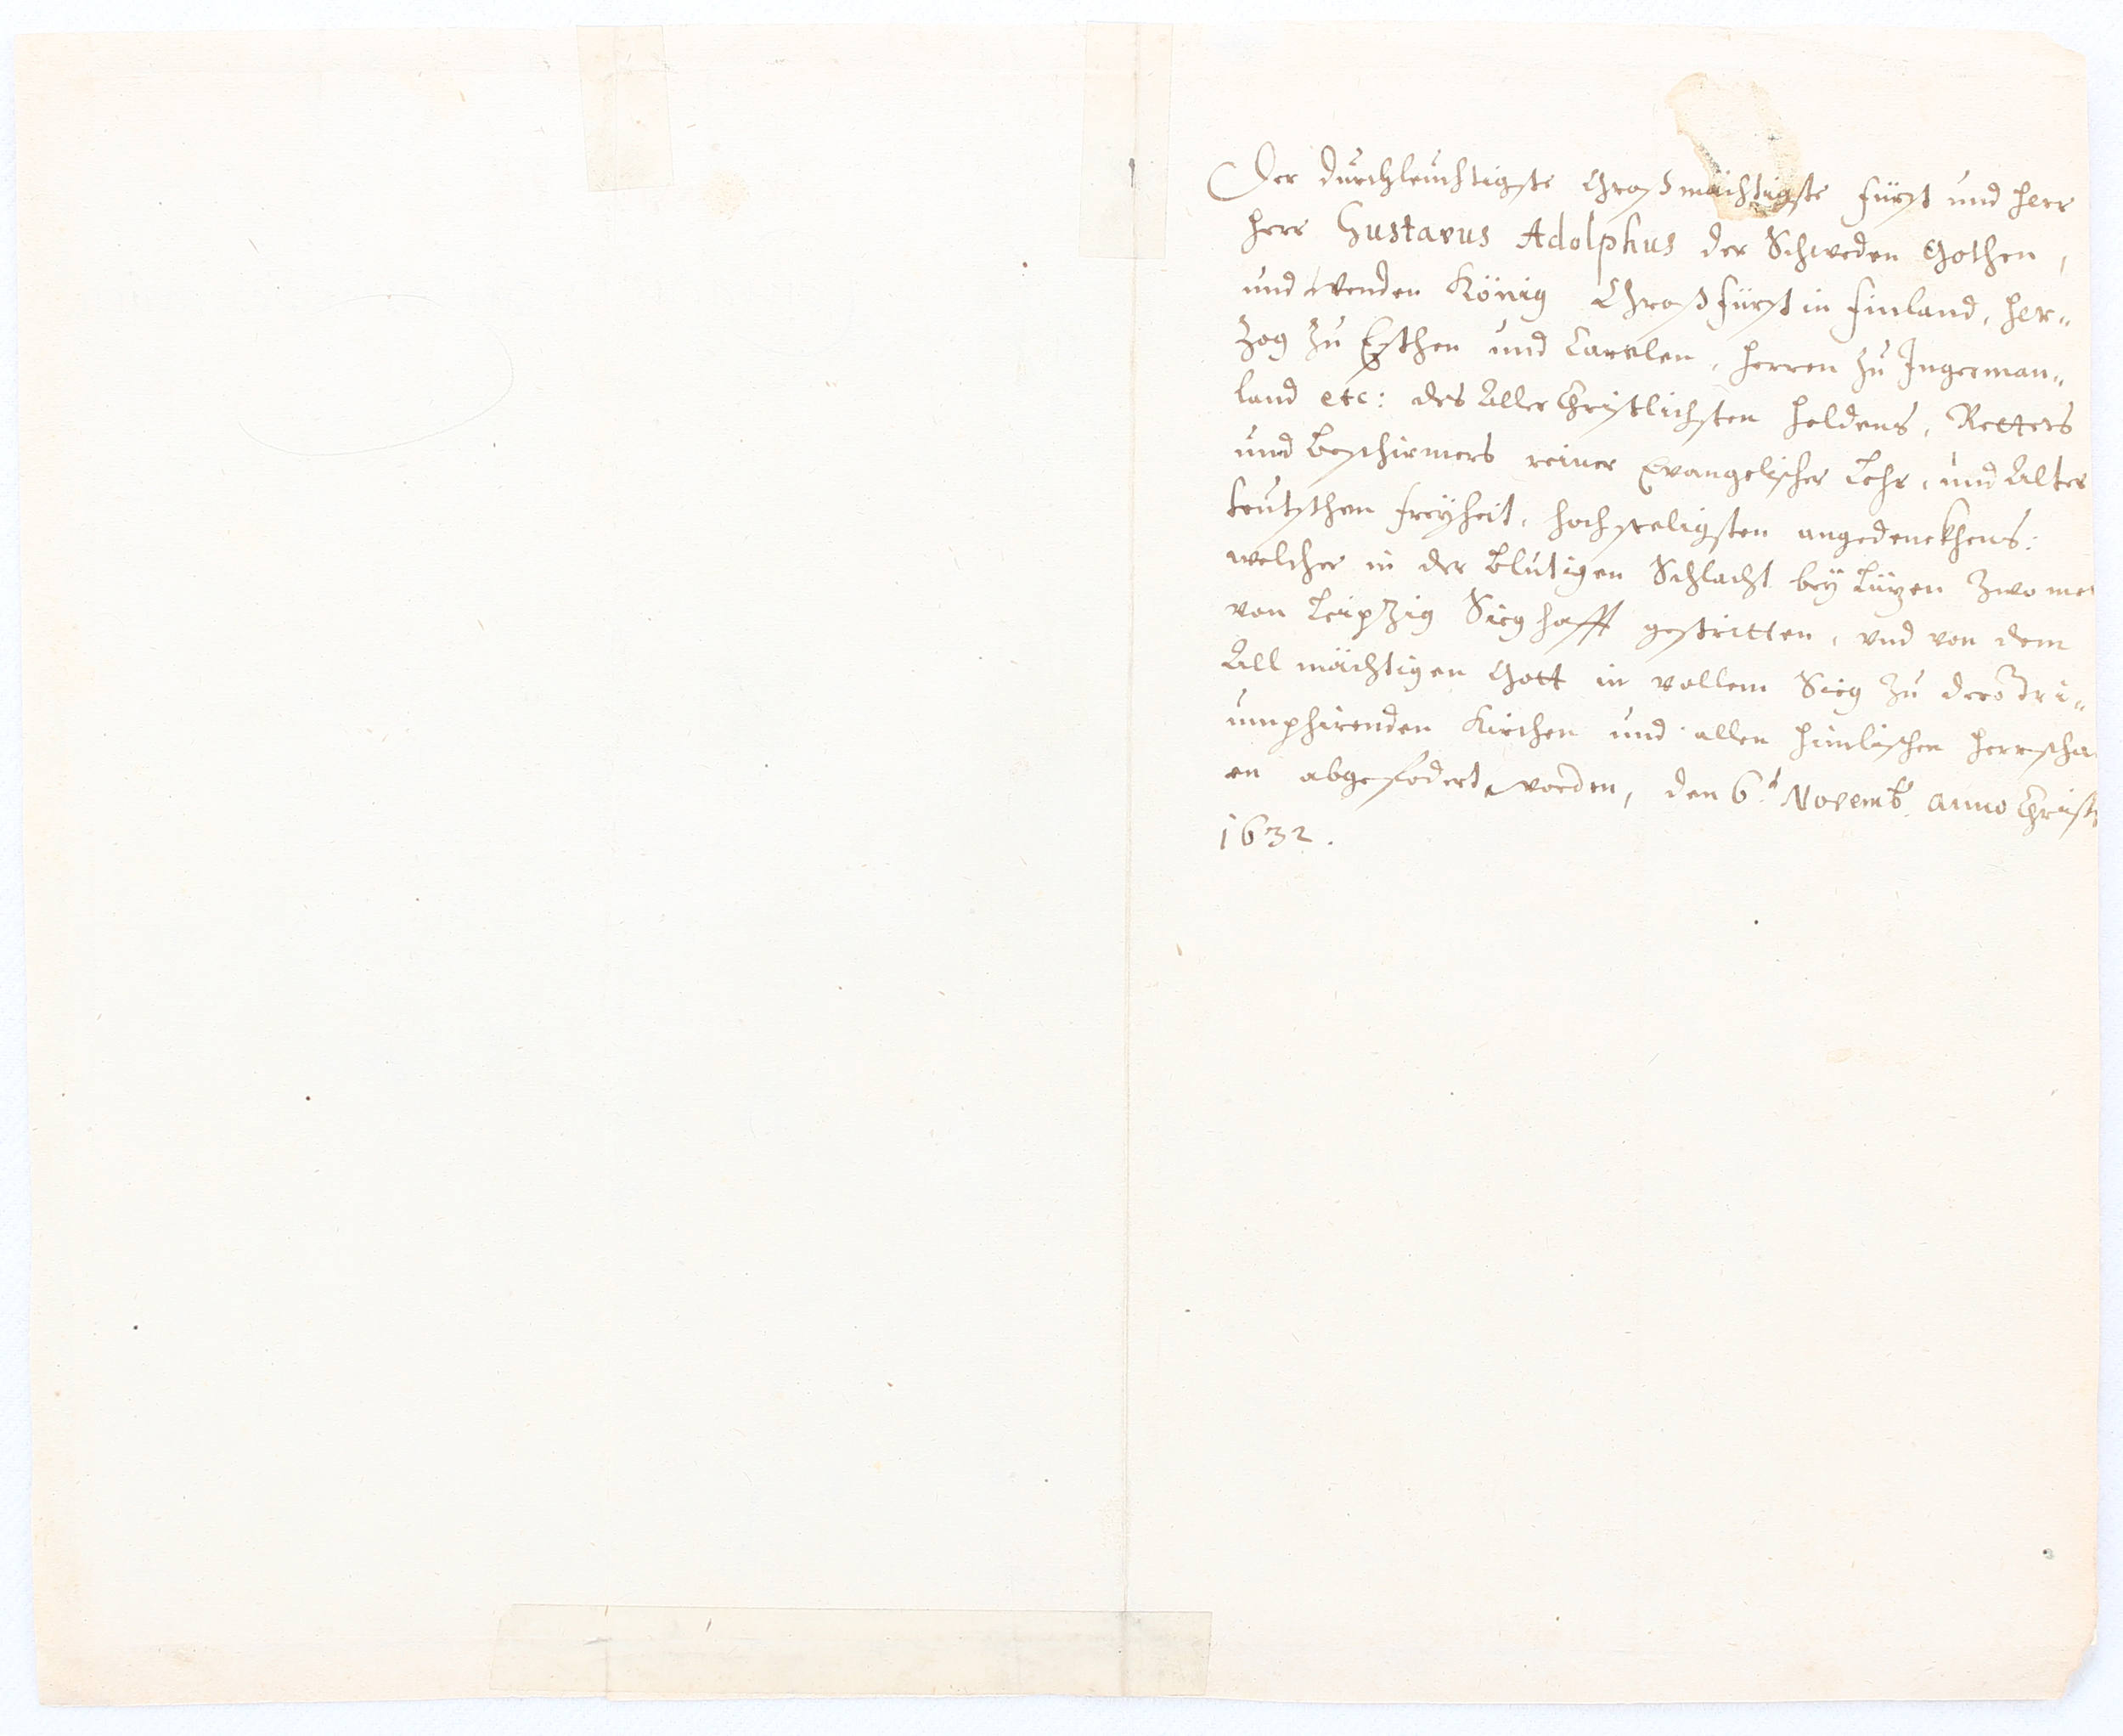 Der durchleuchtigste Großmächtigste fürst und herr
herr Gustavus Adolphus der Schweden Gothen,
und Wenden König Großfürst in finland, her„
zog zu Esthen und Carelen, herren zu Ingerman„
land etc: des Aller Christlichsten heldens, Retters
und beschirmers reiner Evangelischer Lehr, und Alter
teutschen freÿheit, hochseeligsten angedenckhens:
welcher in der blutigen Schlacht beÿ Lützen zwo me
von Leipzig Sieghafft gestritten, und von dem
All mächtigen Gott in vollem Sieg zu dero Tri„
umphirenden Kirchen und allen himlischen herrscha
en abgefodert worden, den 6.t Novemb. anno Christ
1632.